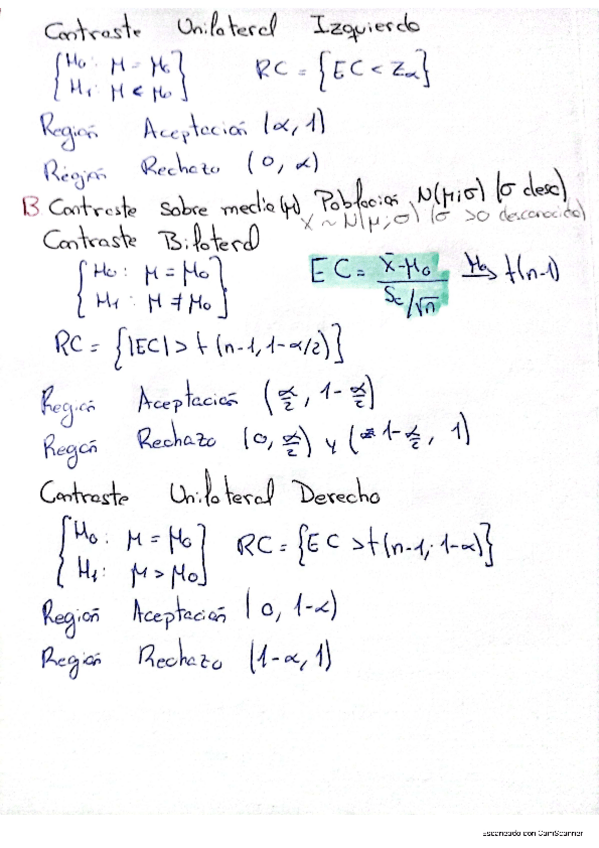 Contraste Unilateral Izquierdo
{H₀: μ = μ₀
H₁: μ < μ₀} RC = {EC < Zα}
Región Aceptación (α, 1)
Región Rechazo (0, α)
B Contraste sobre media (μ) Población N(μ;σ) (σ desc)
X ~ N(μ;σ) (σ >0 desconocida)
Contraste Bilateral
{H₀: μ = μ₀
H₁: μ ≠ μ₀} EC = (x̄-μ₀)/(Sc/√n) →H₀ t(n-1)
RC = {|EC| > t (n-1, 1-α/2)}
Región Aceptación (α/2, 1-α/2)
Región Rechazo (0, α/2) y (1-α/2, 1)
Contraste Unilateral Derecho
{H₀: μ = μ₀
H₁: μ > μ₀} RC = {EC > t(n-1; 1-α)}
Región Aceptación (0, 1-α)
Región Rechazo (1-α, 1)
Escaneado con CamScanner